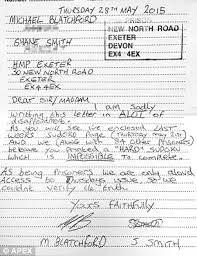 THURSDAY 28TH MAY 2015
MICHAEL BLATCHFORD
SHANE SMITH
PRISON
NEW NORTH ROAD
EXETER
DEVON
EX4 4EX
HMP EXETER
30 NEW NORTH ROAD
EXETER
EX4 4EX
DEAR SIR/MADAM
I am SADLY
WRITING THIS LETTER IN ALOT OF
DISAPPOINTMENT.
AS YOU WILL SEE I'VE ENCLOSED LAST
WEEKS SUDOKU PAGE (THURSDAY MAY 21ST)
AND WE (ALONG WITH 84 OTHER PRISONERS)
BELIEVE YOU PRINTED A "HARD" SUDOKU
WHICH IS IMPOSSIBLE TO COMPLETE.
AS BEING PRISONERS WE ARE ONLY ALLOWED
ACCESS TO THURSDAYS ISSUE, SO WE
COULDNT VERIFY THE TRUTH.
YOURS FAITHFULLY
M BLATCHFORD
S. SMITH
© APEX